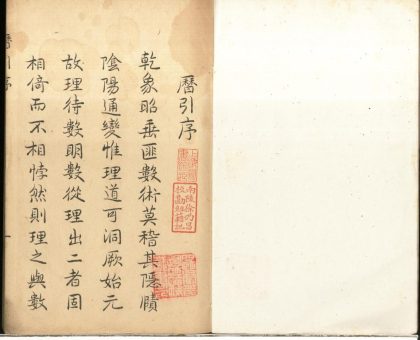 曆引序
乾象昭垂匪數術莫稽其隱賾
陰陽通變惟理道可洞厥始元
故理待數明數從理出二者固
相倚而不相悖然則理之與數
曆引序 一
南陵徐乃昌
校勘經籍記